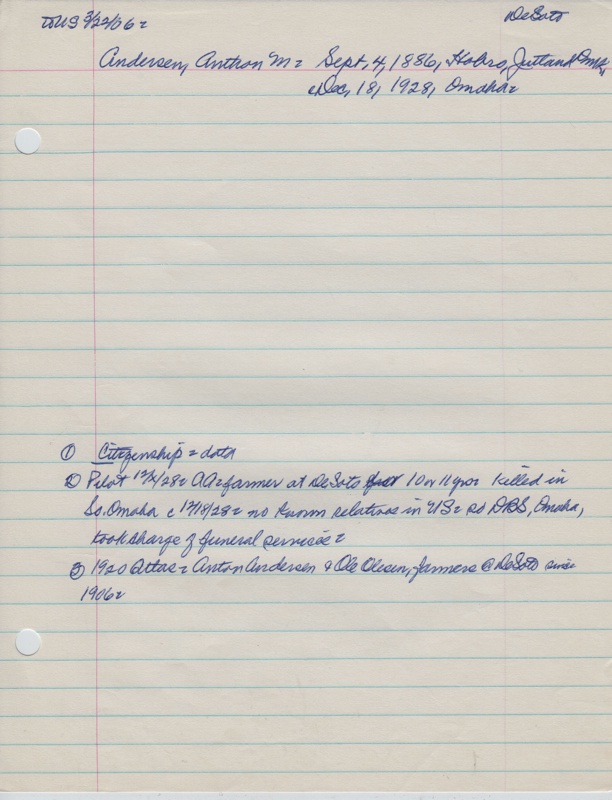 3/22/06 = DeSoto
Andersen, Anthon M = Sept, 4, 1886, Jutland Dmk,
Dec, 18, 1928, Omaha =
① Citizenship = data
② Pilot = AA = farmer at DeSoto for 10 or 11 yrs killed in
So. Omaha c 12/18/28 = no known relatives in US = so DBS, Omaha,
took charge of funeral services =
③ 1920 Atlas = Anton Andersen & Ole Olesen, farmers @ DeSoto since
1906 =